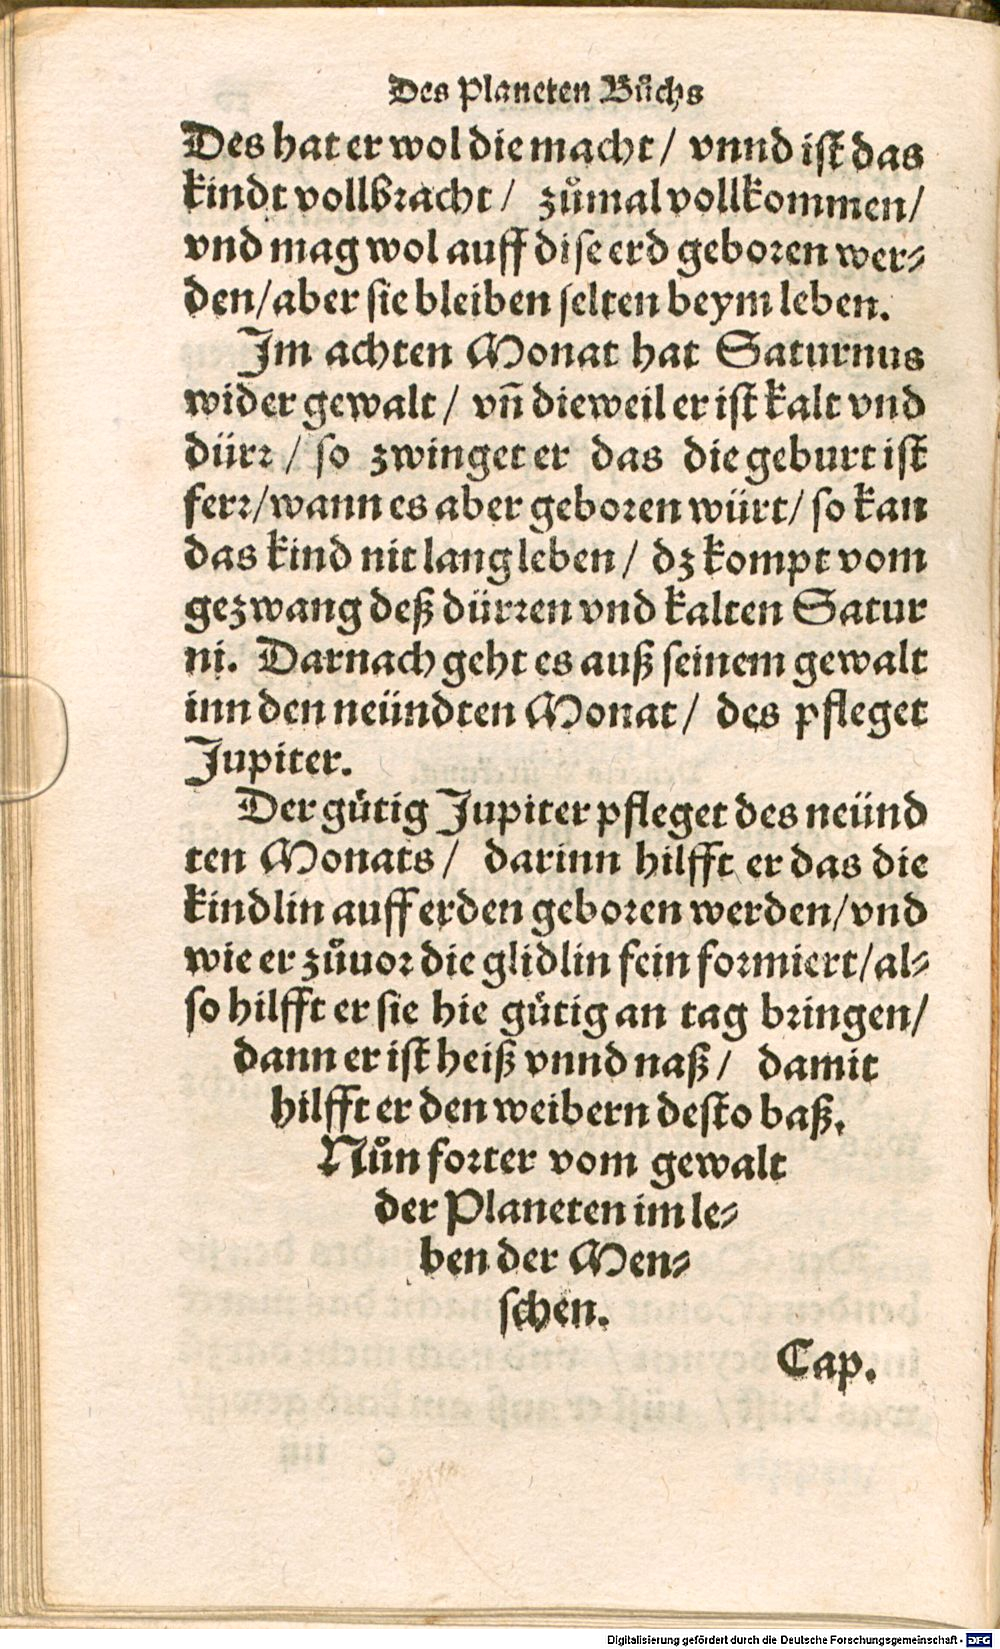 Des Planeten Bůchs
Des hat er wol die macht / vnnd ist das
kindt vollbracht / zůmal vollkommen /
vnd mag wol auff dise erd geboren wer⸗
den / aber sie bleiben selten beym leben.
Im achten Monat hat Saturnus
wider gewalt / vñ dieweil er ist kalt vnd
dürr / so zwinget er das die geburt ist
ferr / wann es aber geboren würt / so kan
das kind nit lang leben / dz kompt vom
gezwang deß dürren vnd kalten Satur
ni. Darnach geht es auß seinem gewalt
inn den neündten Monat / des pfleget
Jupiter.
Der gütig Jupiter pfleget des neünd
ten Monats / darinn hilfft er das die
kindlin auff erden geboren werden / vnd
wie er zůuor die glidlin fein formiert / al⸗
so hilfft er sie hie gütig an tag bringen /
dann er ist heiß vnnd naß / damit
hilfft er den weibern desto baß.
Nůn forter vom gewalt
der Planeten im le⸗
ben der Men⸗
schen.
Cap.
Digitalisierung gefördert durch die Deutsche Forschungsgemeinschaft - DFG